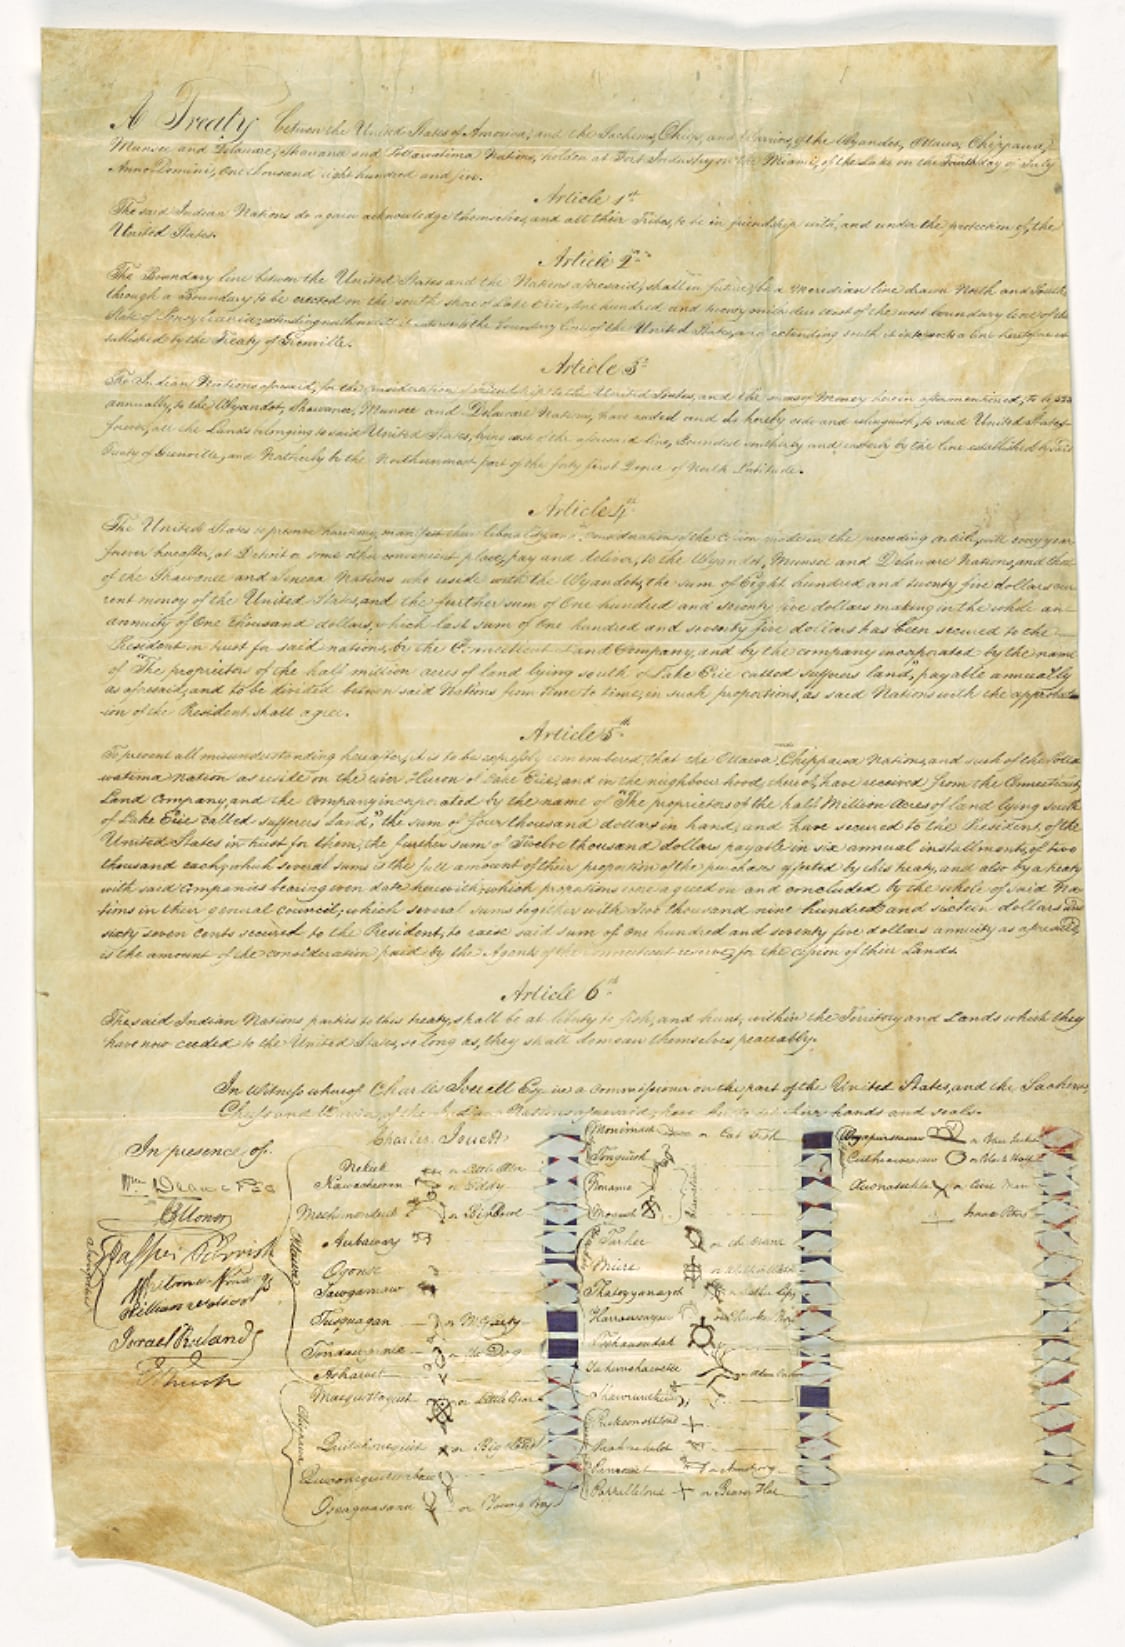 A Treaty between the United States of America, and the Sachems, Chiefs, and Warriors, of the Wyandot, Ottawa, Chippawa,
Munsee and Delaware, Shawanee and Pottawatima Nations, holden at Fort Industry on the Miami, of the Lake on the Fourth day of July
Anno Domini, One thousand eight hundred and five.
Article 1st
The said Indian Nations do again acknowledge themselves, and all their Tribes, to be in friendship with, and under the protection of, the
United States.
Article 2nd
The Boundary line between the United States and the Nations aforesaid, shall in future be a meridian line drawn North and South,
through a Boundary to be erected on the south shore of Lake Erie, One hundred and twenty miles due west of the west boundary line of the
State of Pensylvania; extending north until it intersects the boundary line of the United States, and extending south it intersects a line heretofore es-
tablished by the Treaty of Grenville.
Article 3d
The Indian Nations aforesaid, for the consideration of friendship to the United States, and the sums of money herein after mentioned, to be paid
annually, to the Wyandot, Shawanee, Munsee and Delaware Nations, have ceded and do hereby cede and relinquish, to said United States
forever, all the Lands belonging to said United States, lying east of the aforesaid line, Bounded southerly and easterly by the line established by said
Treaty of Grenville, and Northerly by the Northernmost part of the forty first Degree of North Latitude.
Article 4th
The United States to preserve harmony, manifest their liberality, and in consideration of the Cession made in the preceding article, will every year
forever hereafter, at Detroit or some other convenient place, pay and deliver, to the Wyandot, Munsee and Delaware Nations, and those
of the Shawanee and Seneca Nations who reside with the Wyandots, the sum of Eight hundred and twenty five dollars cur
rent money of the United States, and the further sum of One hundred and seventy five dollars making in the whole an
annuity of One thousand dollars, which last sum of One hundred and seventy five dollars has been secured to the
President in trust for said nations, by the Connecticut Land Company, and by the company incorporated by the name
of "The proprietors of the half million acres of land lying south of Lake Erie called sufferers land," payable annually
as aforesaid, and to be divided between said Nations from time to time, in such proportions, as said Nations with the approbat
ion of the President shall agree.
Article 5th
To prevent all misunderstanding hereafter, it is to be expressly remembered, that the Ottawa, Chippawa Nations, and such of the Potta
watima Nation as reside on the river Huron of Lake Erie, and in the neighbourhood thereof, have received from the Connecticut
Land Company, and the company incorporated by the name of "The proprietors of the half Million Acres of land lying south
of Lake Erie called sufferers land," the sum of four thousand dollars in hand, and have secured to the President, of the
United States in trust for them, the further sum of Twelve thousand dollars payable in six annual installments, of two
thousand each; which several sums is the full amount of their proportion of the purchases effected by this treaty, and also by a treaty
with said Companies bearing even date herewith; which proportions were agreed on and concluded by the whole of said Na
tions in their general council; which several sums together with two thousand nine hundred and sixteen dollars and
sixty seven cents secured to the President, to raise said sum of one hundred and seventy five dollars annuity as aforesaid,
is the amount of the consideration paid by the Agents of the Connecticut reserve, for the cession of their Lands.
Article 6th
The said Indian Nations parties to this treaty, shall be at liberty to fish, and hunt, within the Territory and Lands which they
have now ceeded to the United States, so long as, they shall demean themselves peaceably.
In Witness whereof Charles Jouett Esq. a Commissioner on the part of the United States, and the Sachems,
Chiefs and Warriors, of the Indian Nations aforesaid, have hereto set their hands and seals.
Charles Jouett
In presence of.
Wm Dean
Jasper Parrish
Israel Ruland
Nekeik or Little Otter
Kawacheewan or Eddy
Mechimenduch or Big Bowl
Aubaway
Ogonse
Sawgamaw
Tusquagan or McCarty
Tondawganie or the Dog
Ashawet
Macquettoquet or Little Bear
Quitchonequit or Big Cloud
Queoonequetwabaw
Oseaquasanu or Young Boy
Monimack or Cat Fish
Tonguish
Noname
Mogawh
Tarhee or the Crane
Miere or Walk in Water
Thateyyanayoh or Leather Lips
Harrowenyou or Cherokee Boy
Tschauendah
Tahunehawettee or Adam Brown
Shawrunthie
Puckconsittond
Pahmehelot
Pamoxet or Armstrong
Pappellelond or Beaver Hat
Weyapurseawaw or Blue Jacket
Cutheaweasaw or Black Hoff
Auonasechla or Civil Man
Isaac Peters